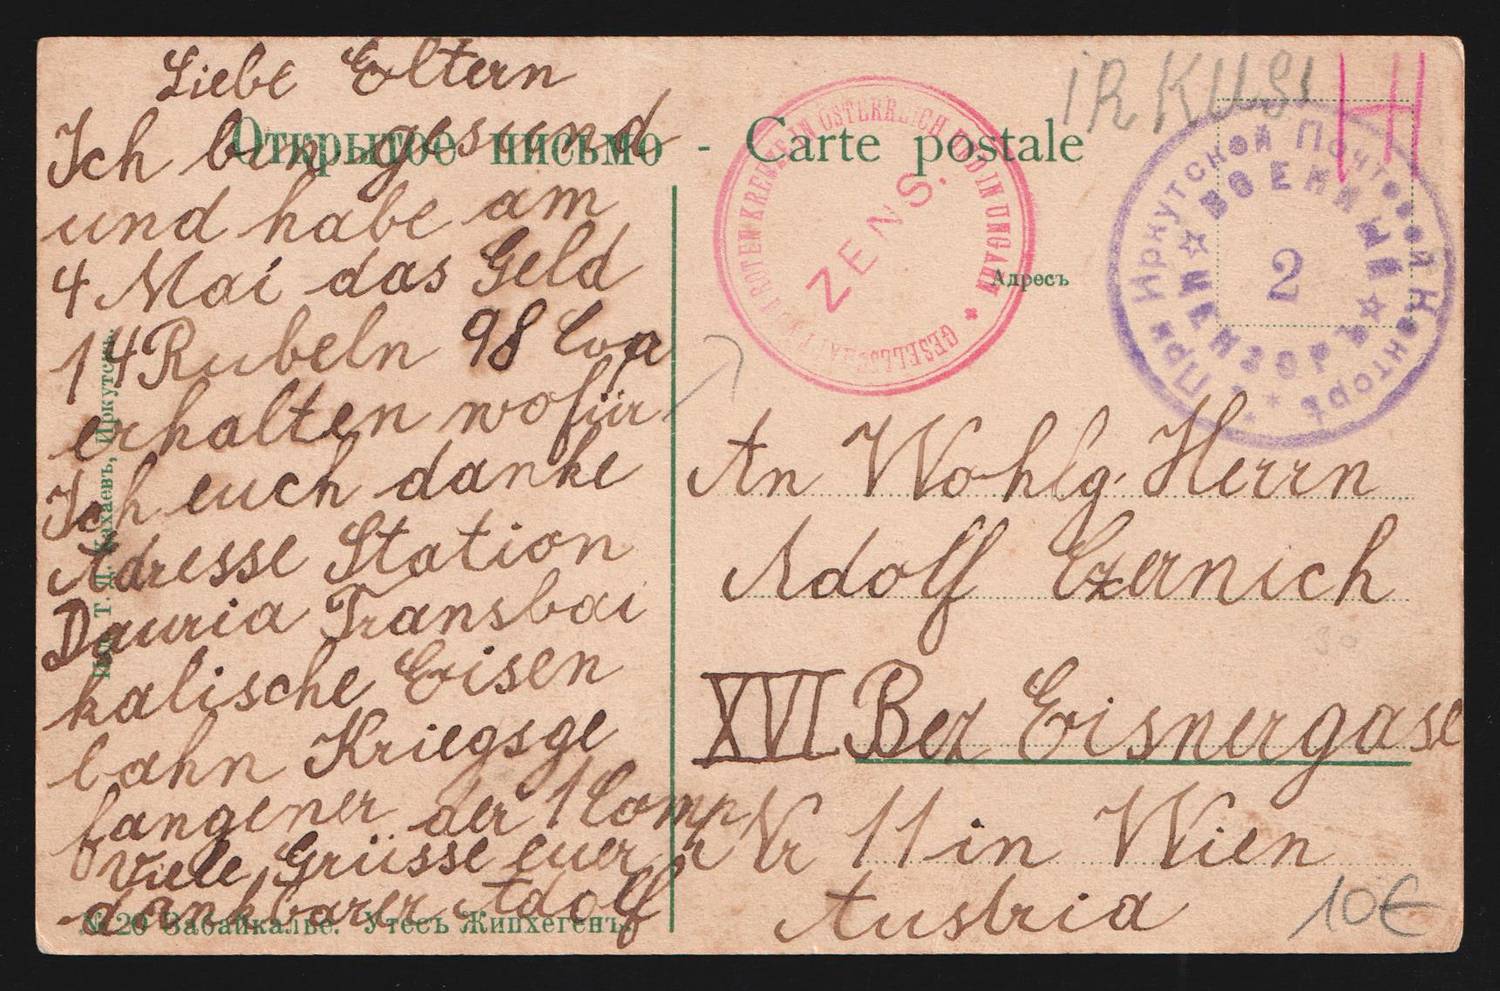 Liebe Eltern
Ich bin gesund
und habe am
4 Mai das Geld
14 Rubeln 98 Cop
erhalten wofür
Ich euch danke
Adresse Station
Dauria Transbai
kalische Eisen
bahn Kriegsge
fangener der 1 Comp
Viele Grüsse euer
dankbarer Adolf
Открытое письмо - Carte postale
Адресъ
IRKUS
GESELLSCHAFT VOM ROTEN KREUZE IN ÖSTERREICH UND IN UNGARN
ZENS.
При Иркутской Почтовой Конторѣ
ВОЕННЫЙ ЦЕНЗОРЪ
2
An Wohlg. Herrn
Adolf Czernich
XVI Bez Eisnergase
Nr 11 in Wien
Austria
10€
30
Т. Д. Иркутскъ.
№ 20 Забайкалье. Утесъ Жипхегенъ.